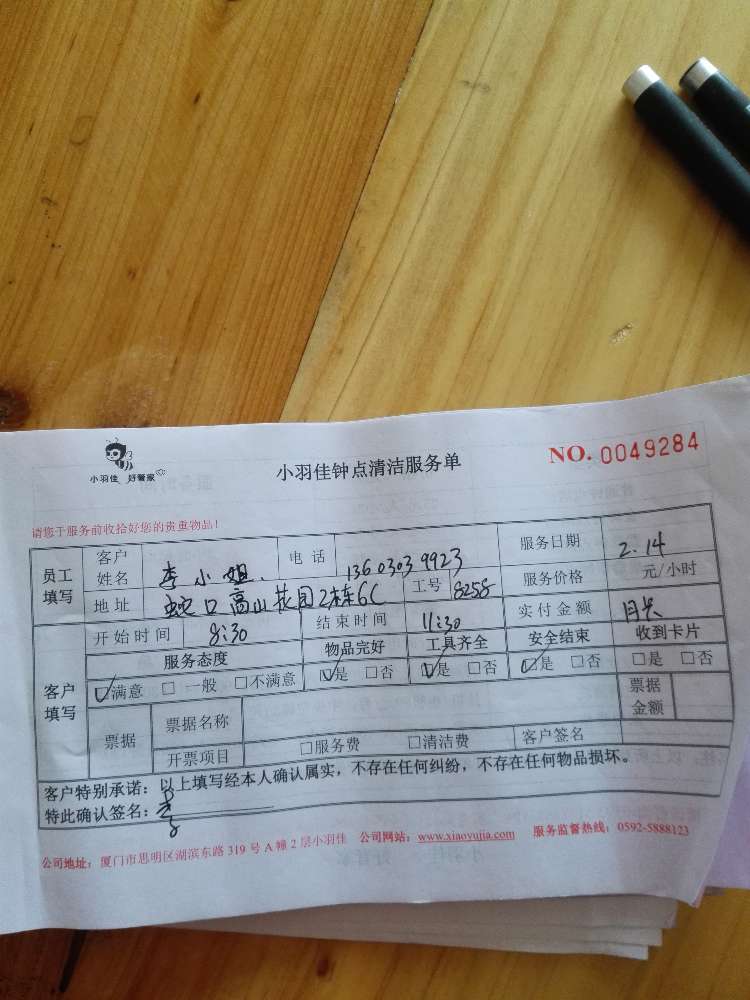 小羽佳 好管家
小羽佳钟点清洁服务单
NO. 0049284
请您于服务前收拾好您的贵重物品!
员工填写 客户姓名 李小姐. 电话 13603039923 服务日期 2.14
地址 蛇口高山花园2栋6C 工号 8258 服务价格 元/小时
客户填写 开始时间 8:30 结束时间 11:30 实付金额
服务态度 物品完好 工具齐全 安全结束 收到卡片
☑满意 □一般 □不满意 ☑是 □否 ☑是 □否 ☑是 □否 □是 □否
票据 票据名称 票据金额
开票项目 □服务费 □清洁费 客户签名
客户特别承诺：以上填写经本人确认属实，不存在任何纠纷，不存在任何物品损坏。
特此确认签名：
公司地址：厦门市思明区湖滨东路 319 号 A 幢 2 层小羽佳 公司网站：www.xiaoyujia.com 服务监督热线：0592-5888123